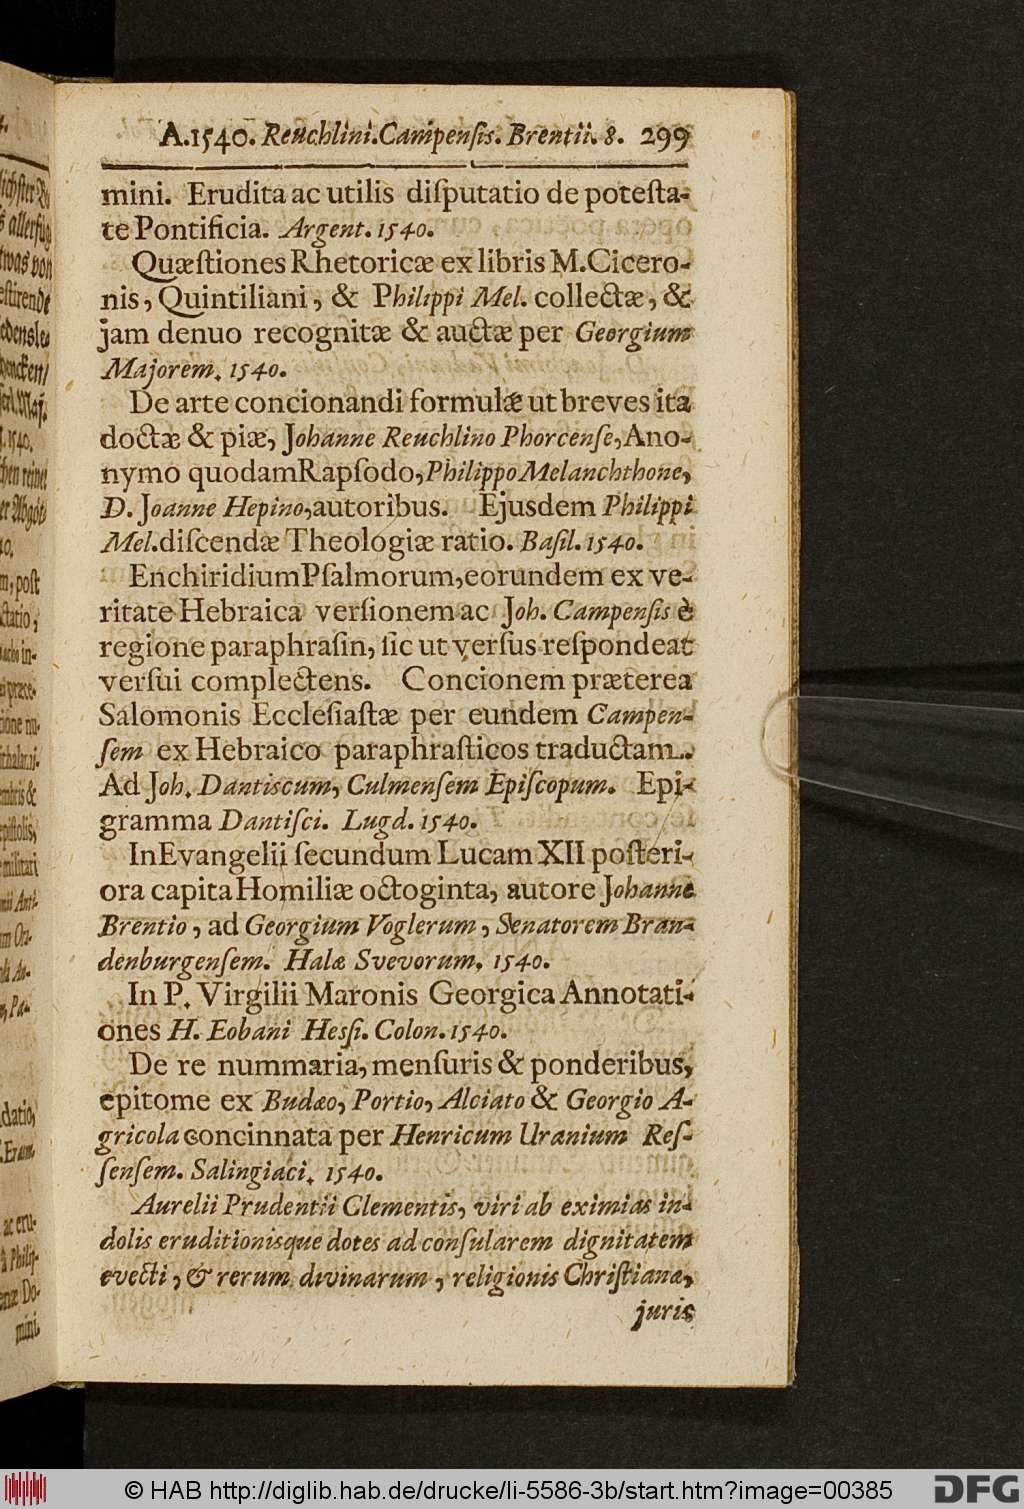 A.1540. Reuchlini.Campenſis. Brentii. 8. 299
mini. Erudita ac utilis diſputatio de poteſta-
te Pontificia. Argent. 1540.
Quæſtiones Rhetoricæ ex libris M.Cicero-
nis, Quintiliani, & Philippi Mel. collectæ, &
jam denuo recognitæ & auctæ per Georgium
Majorem. 1540.
De arte concionandi formulæ ut breves ita
doctæ & piæ, Johanne Reuchlino Phorcenſe, Ano-
nymo quodam Rapſodo, Philippo Melanchthone,
D. Joanne Hepino, autoribus. Ejusdem Philippi
Mel. diſcendæ Theologiæ ratio. Baſil. 1540.
Enchiridium Pſalmorum, eorundem ex ve-
ritate Hebraica verſionem ac Joh. Campenſis è
regione paraphraſin, ſic ut verſus reſpondeat
verſui complectens. Concionem præterea
Salomonis Eccleſiaſtæ per eundem Campen-
ſem ex Hebraico paraphraſticos traductam.
Ad Joh. Dantiscum, Culmenſem Epiſcopum. Epi-
gramma Dantiſci. Lugd. 1540.
In Evangelii ſecundum Lucam XII poſteri-
ora capita Homiliæ octoginta, autore Johanne
Brentio, ad Georgium Voglerum, Senatorem Bran-
denburgenſem. Halæ Svevorum. 1540.
In P. Virgilii Maronis Georgica Annotati-
ones H. Eobani Heſſi. Colon. 1540.
De re nummaria, menſuris & ponderibus,
epitome ex Budæo, Portio, Alciato & Georgio A-
gricola concinnata per Henricum Uranium Reſ-
ſenſem. Salingiaci. 1540.
Aurelii Prudentii Clementis, viri ab eximias in-
dolis eruditionisque dotes ad conſularem dignitatem
evecti, & rerum divinarum, religionis Chriſtianæ,
juris
© HAB http://diglib.hab.de/drucke/li-5586-3b/start.htm?image=00385
DFG